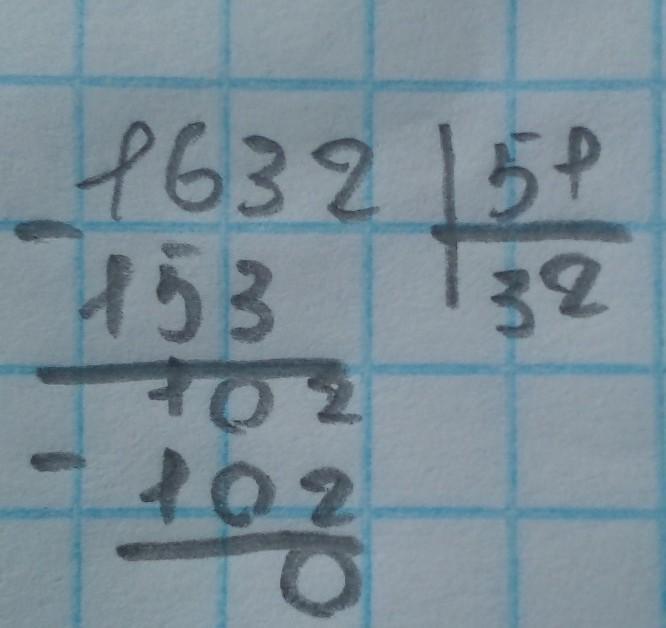 1632 | 51
- 153 32
102
- 102
0